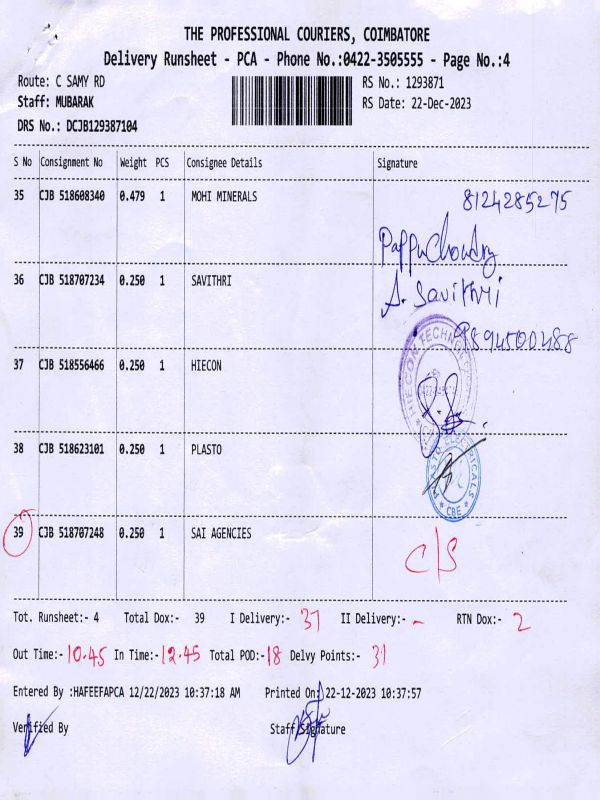 THE PROFESSIONAL COURIERS, COIMBATORE
Delivery Runsheet - PCA - Phone No.:0422-3505555 - Page No.:4
Route: C SAMY RD RS No.: 1293871
Staff: MUBARAK RS Date: 22-Dec-2023
DRS No.: DCJB129387104
S No Consignment No Weight PCS Consignee Details Signature
35 CJB 518608340 0.479 1 MOHI MINERALS 8124285275
Pappu Choudry
36 CJB 518707234 0.250 1 SAVITHRI A. Savithri
37 CJB 518556466 0.250 1 HIECON
HIECON TECHNO
38 CJB 518623101 0.250 1 PLASTO
PLASTO ELECTRICALS
CBE
39 CJB 518707248 0.250 1 SAI AGENCIES C/S
Tot. Runsheet:- 4 Total Dox:- 39 I Delivery:- 37 II Delivery:- - RTN Dox:- 2
Out Time:- 10.45 In Time:- 12.45 Total POD:- 18 Delvy Points:- 31
Entered By :HAFEEFAPCA 12/22/2023 10:37:18 AM Printed On: 22-12-2023 10:37:57
Verified By Staff Signature